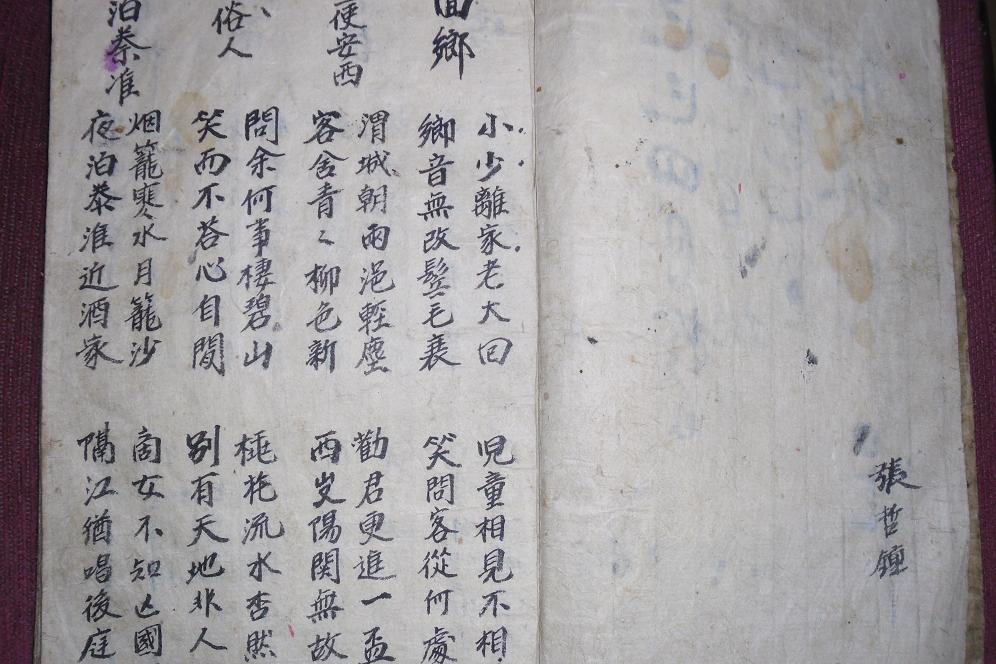 張哲鐘
回鄉
小少離家老大回
鄉音無改鬢毛衰
児童相見不相
笑問客從何處
使安西
渭城朝雨浥輕塵
客舍青々柳色新
勸君更進一盃
西出陽関無故
俗人
問余何事棲碧山
笑而不荅心自閒
桃花流水杳然
別有天地非人
泊秦淮
烟籠寒水月籠沙
夜泊秦淮近酒家
商女不知亡國
隔江猶唱後庭